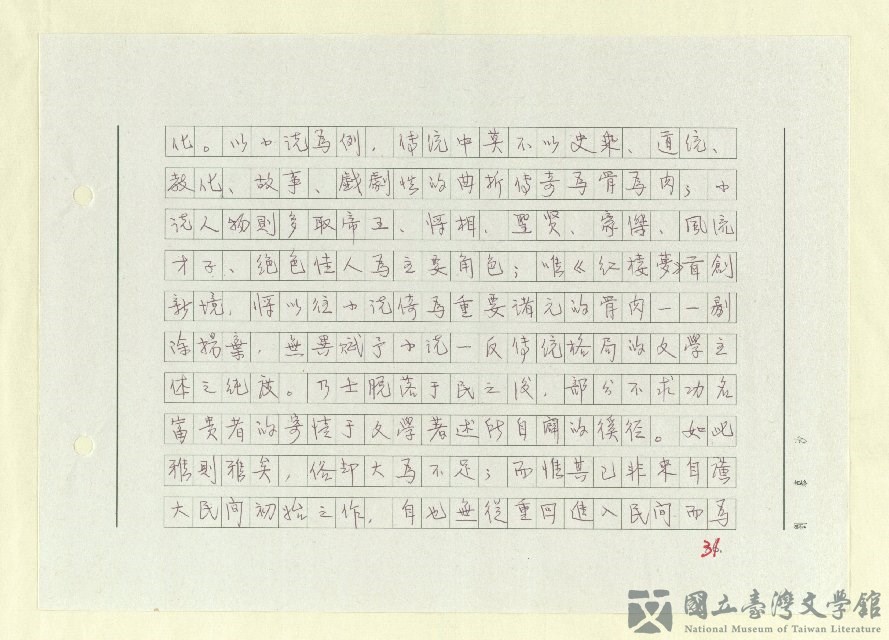 化。以小说為例，傳统中莫不以史梁、道统、
教化、故事、戲劇性的曲折传奇為骨為肉；小
说人物則多取帝王、将相、聖贤、豪傑、風流
才子、绝色佳人為主要角色；唯《红楼夢》首創
新境，将以往小说倚為重要诸元的骨肉一一剔
除揚棄，無異赋予小说一反传统格局的文學主
体之纯度。乃士脱落于民之後，部分不求功名
富贵者的寄情于文學著述所自闢的徯径。如此
雅則雅矣，俗却大為不足；而惟其已非来自廣
大民间初始之作，自也無從重回進入民间而為
34.
國立臺灣文學館
National Museum of Taiwan Literature